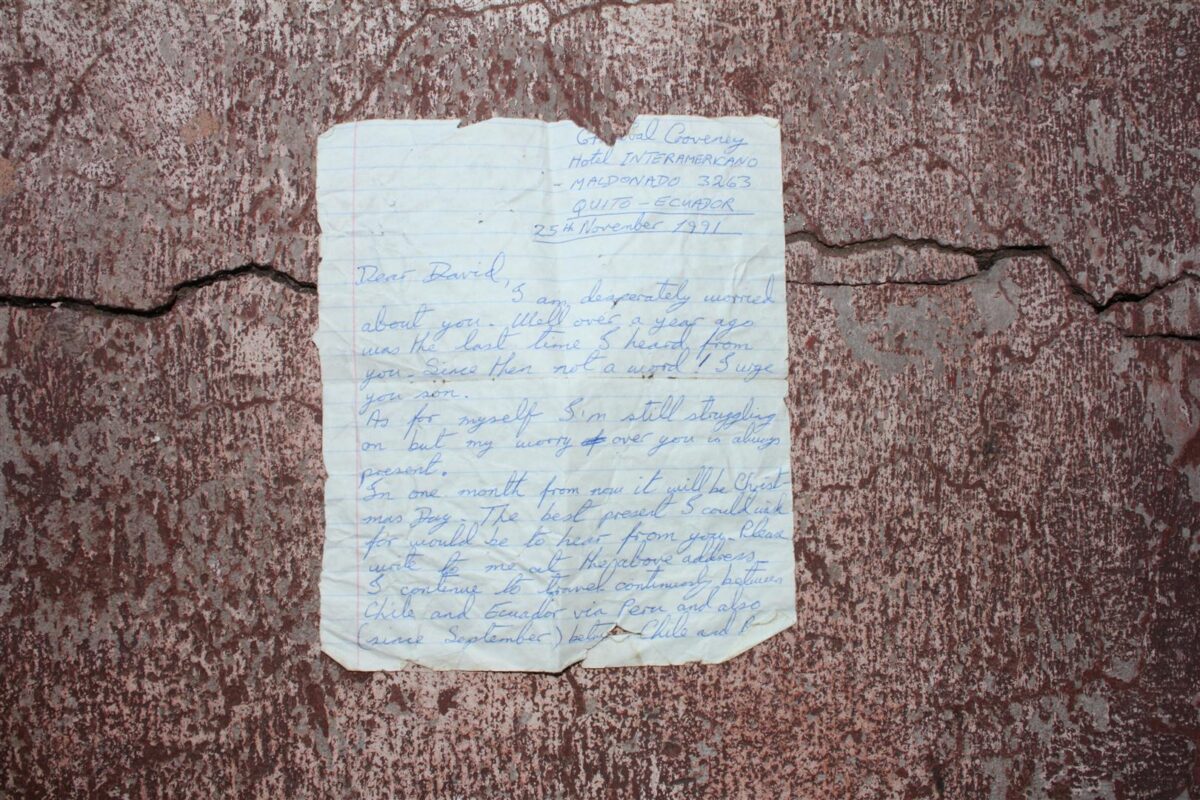 Cooveney
Hotel INTERAMERICANO
- MALDONADO 3263
QUITO - ECUADOR
25th November 1991
Dear David,
I am desperately worried
about you. Well over a year ago
was the last time I heard from
you. Since then not a word! I urge
you son.
As for myself I'm still struggling
on but my worry over you is always
present.
In one month from now it will be Christ-
mas Day. The best present I could wish
for would be to hear from you. Please
write to me at the above address.
I continue to travel continuously between
Chile and Ecuador via Peru and also
(since September) Chile and